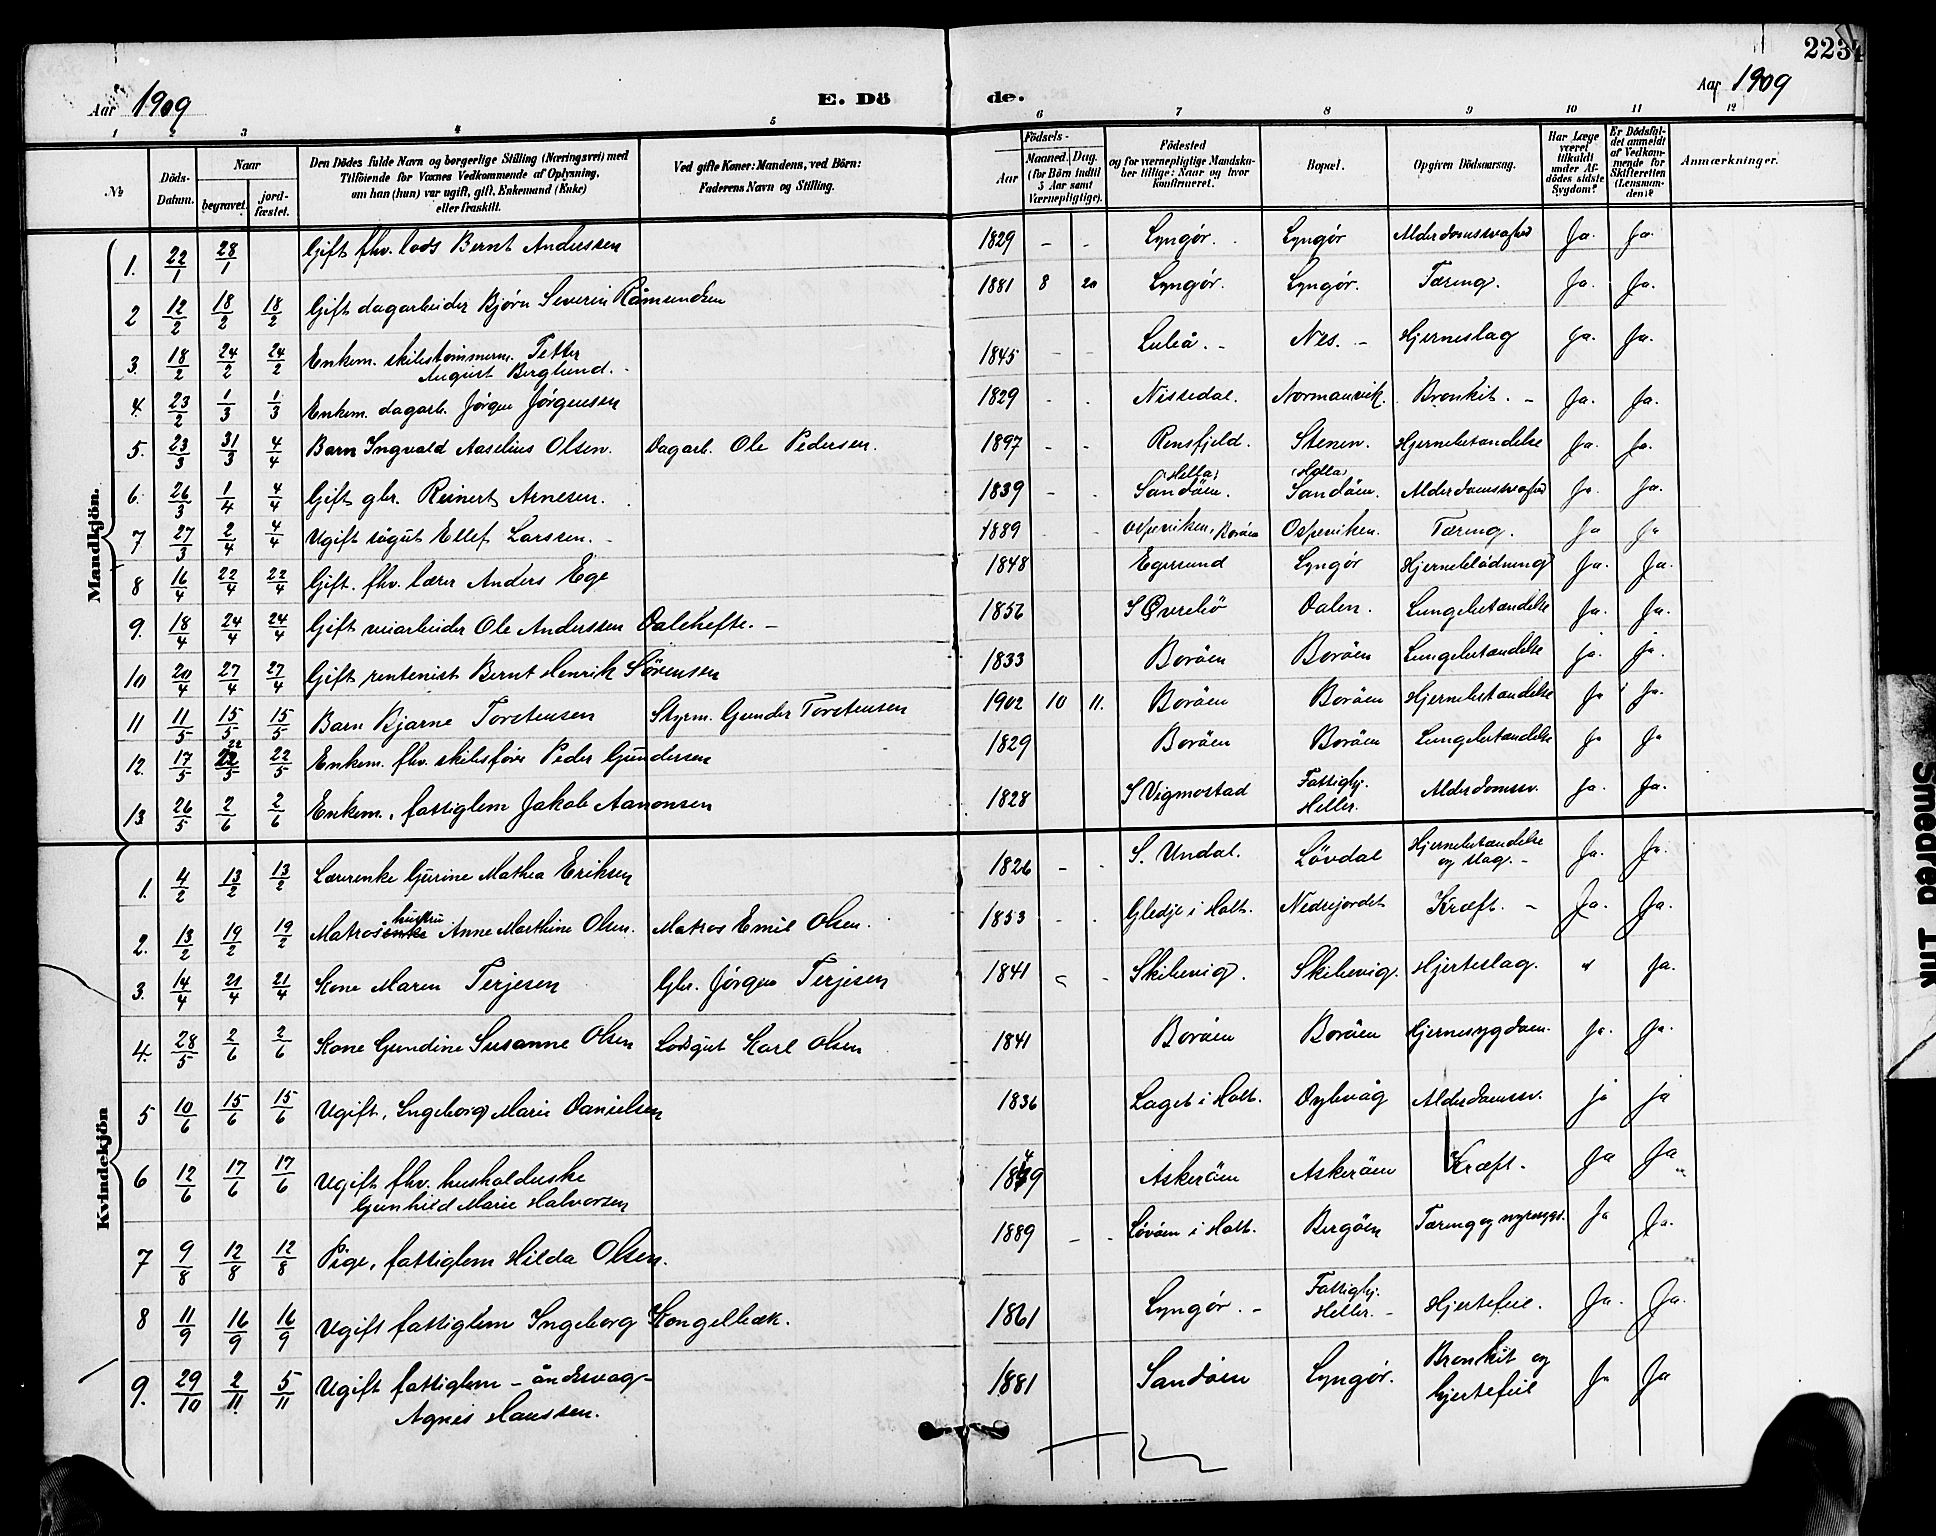 223
Aar 1909 E. Dö de. Aar 1909
1 2 3 4 5 6 7 8 9 10 11 12
No
Döds-Datum.
Naar
begravet.
jordfæstet.
Den Dödes fulde Navn og borgerlige Stilling (Næringsvei) med
Tilföiende for Voxnes Vedkommende af Oplysning,
om han (hun) var ugift, gift, Enkemand (Enke)
eller fraskilt.
Ved gifte Koner: Mandens, ved Börn:
Faderens Navn og Stilling.
Födsels-
Aar
Maaned. Dag.
(for Börn indtil
5 Aar samt
Værnepligtige).
Födested
og for værnepligtige Mandskaber tillige: Naar og hvor
konfirmeret.
Bopæl.
Opgiven Dödsaarsag.
Har Læge været tilkaldt under Afdödes sidste Sygdom?
Er Dödsfaldet anmeldt af Vedkommende for Skifteretten (Lensmanden)?
Anmærkninger.
Mandkjön.
1. 22/1 28/1 Gift fhv. lods Bernt Anderssen 1829 - - Lyngør. Lyngør Alderdomssvaghed Ja. Ja.
2 12/2 18/2 18/2 Gift dagarbeider Bjørn Severin Råmundsen 1881 8 20 Lyngør. Lyngør. Tæring. Ja. Ja.
3. 18/2 24/2 24/2 Enkem. skibstømmerm. Petter
August Berglund. 1845 - - Luleå. - Nes. - Hjerneslag Ja. Ja.
4. 23/2 1/3 1/3 Enkem. dagarb. Jørgen Jørgensen 1829 - - Nissedal. Normanvik. Bronkit. - Ja. Ja.
5. 23/3 31/3 4/4 Barn Ingvald Aaselius Olsen. Dagarb. Ole Pedersen. 1897 - - Rensfjeld. Stenen. Hjernebetændelse Ja. Ja.
6. 26/3 1/4 4/4 Gift gbr. Reinert Arnesen. 1839 - - Hella, Sandöen. Hella, Sandöen. Alderdomssvaghed Ja. Ja.
7 27/3 2/4 4/4 Ugift sögut Ellef Larssen. - 1889 - - Ospeviken, Boröen Ospeviken. Tæring. Ja Ja
8 16/4 22/4 22/4 Gift. fhv. lærer Anders Ege 1848 Egersund Lyngør Hjerneblödning Ja. Ja.
9. 18/4 24/4 24/4 Gift veiarbeider Ole Anderssen Dalehefte. - 1856 S Øvrebö Dalen. Lungebetændelse Ja. Ja.
10 20/4 27/4 27/4 Gift rentenist Bernt Henrik Sörensen 1833 Boröen Boröen Lungebetændelse ja. ja.
11 11/5 15/5 15/5 Barn Bjarne Torstensen Styrm. Gunder Torstensen 1902 10 11. Boröen Boröen Hjernebetændelse Ja Ja.
12. 17/5 22/5 22/5 Enkem. fhv. skibsförer Peder Gundersen 1829 Boröen Boröen Lungebetændelse Ja Ja
13 26/5 2/6 2/6 Enkem., fattiglem Jakob Aanonsen 1828 S Vigmostad Fattighj. Heller. Alderdomssv. Ja. Ja.
Kvindekjön
1. 4/2 13/2 13/2 Lærerenke Gurine Mathea Eriksen 1826 - - S. Undal. Lövdal Hjernebetændelse
og slag. - Ja. Ja.
2. 13/2 19/2 19/2 Matros enke hustru Anne Marthine Olsen. Matros Emil Olsen. 1853 - - Gledje i Holt. Nedrejordet Kræft. - Ja. Ja.
3. 14/4 21/4 21/4 Kone Maren Terjesen Gbr. Jørgen Terjesen 1841 - - Skibevig. Skibevig. Hjerteslag. " Ja.
4. 28/5 2/6 2/6 Kone Gundine Susanne Olsen Lodsgut Karl Olsen 1841 Boröen Boröen Hjernesygdom. Ja. Ja.
5 10/6 15/6 15/6 Ugift, Ingeborg Marie Danielsen 1836 Laget i Holt. Dybvåg Alderdomssv. ja ja
6 12/6 17/6 17/6 Ugift fhv. husholderske
Gunhild Marie Halvorsen 1849 Askeröen Askeröen Kræft. Ja Ja
7 9/8 12/8 12/8 Pige, fattiglem Hilda Olsen. 1889 - - Lövöen i Holt. Bergöen Tæring og nyresygd. Ja Ja.
8 11/9 16/9 16/9 Ugift fattiglem Ingeborg Kongelbæk. 1861 Lyngør. - Fattighj. Heller. - Hjertefeil. Ja. Ja.
9. 29/10 2/11 5/11 Ugift fattiglem - åndsvag -
Agnes Hanssen. 1881 Sandöen Lyngør. Bronkit og
hjertefeil Ja Ja
Smeared Ink